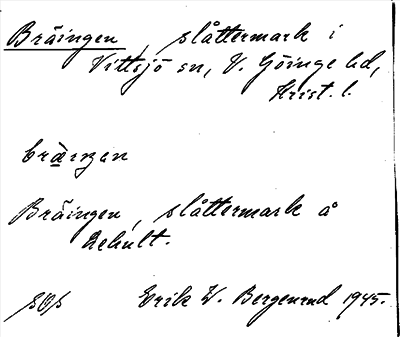 Bräingen, slåttermark i
Vittsjö sn, V. Göinge hd,
Krist. l.
Bräingen, slåttermark å
Erik W. Bergenrud 1945.